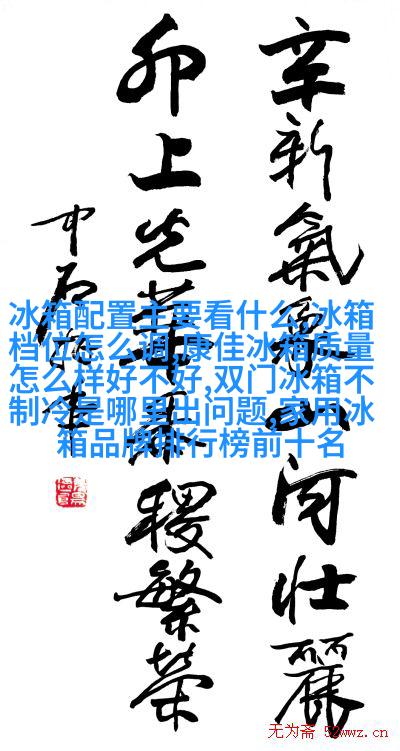 辛新氣聚山河壯麗
卯上光華稷繁榮
中石
冰箱配置主要看什么,冰箱
档位怎么调,康佳冰箱质量
怎么样好不好,双门冰箱不
制冷是哪里出问题,家用冰
箱品牌排行榜前十名
无为斋 52wwz.cn